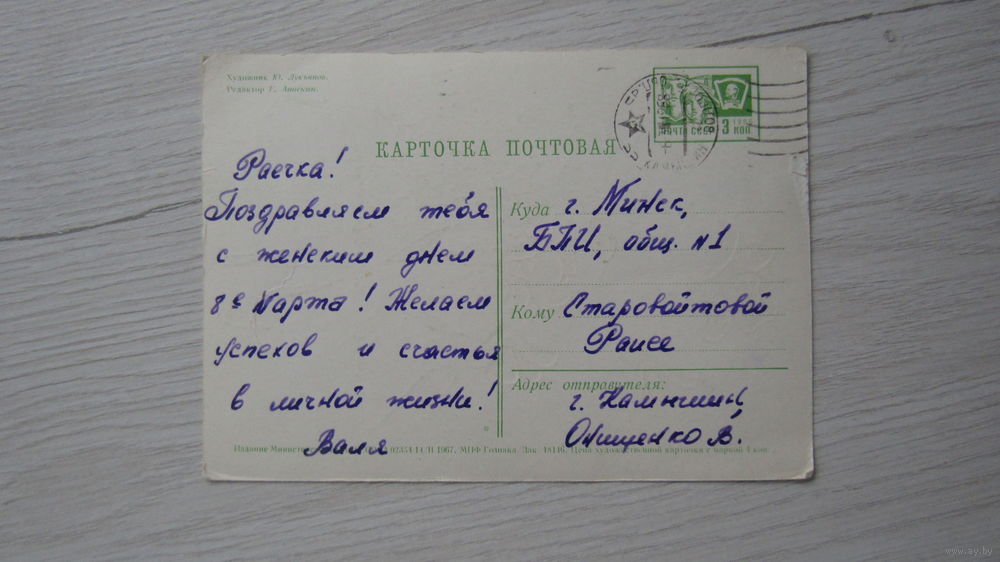 Художник Ю. Лукьянов.
Редактор Г. Аноскин.
ПОЧТА СССР
3 КОП
КАРТОЧКА ПОЧТОВАЯ
Раечка!
Поздравляем тебя
с женским днем
8е Марта! Желаем
успехов и счастья
в личной жизни!
Валя
Куда г. Минск,
БПИ, общ. №1
Кому Старовойтовой
Раисе
Адрес отправителя:
г. Камышин,
Онищенко В.
Издание Министе 02354 1967. МПФ Гознака. Зак. 18146. Цена художественной карточки с маркой 4 коп.
www.ay.by